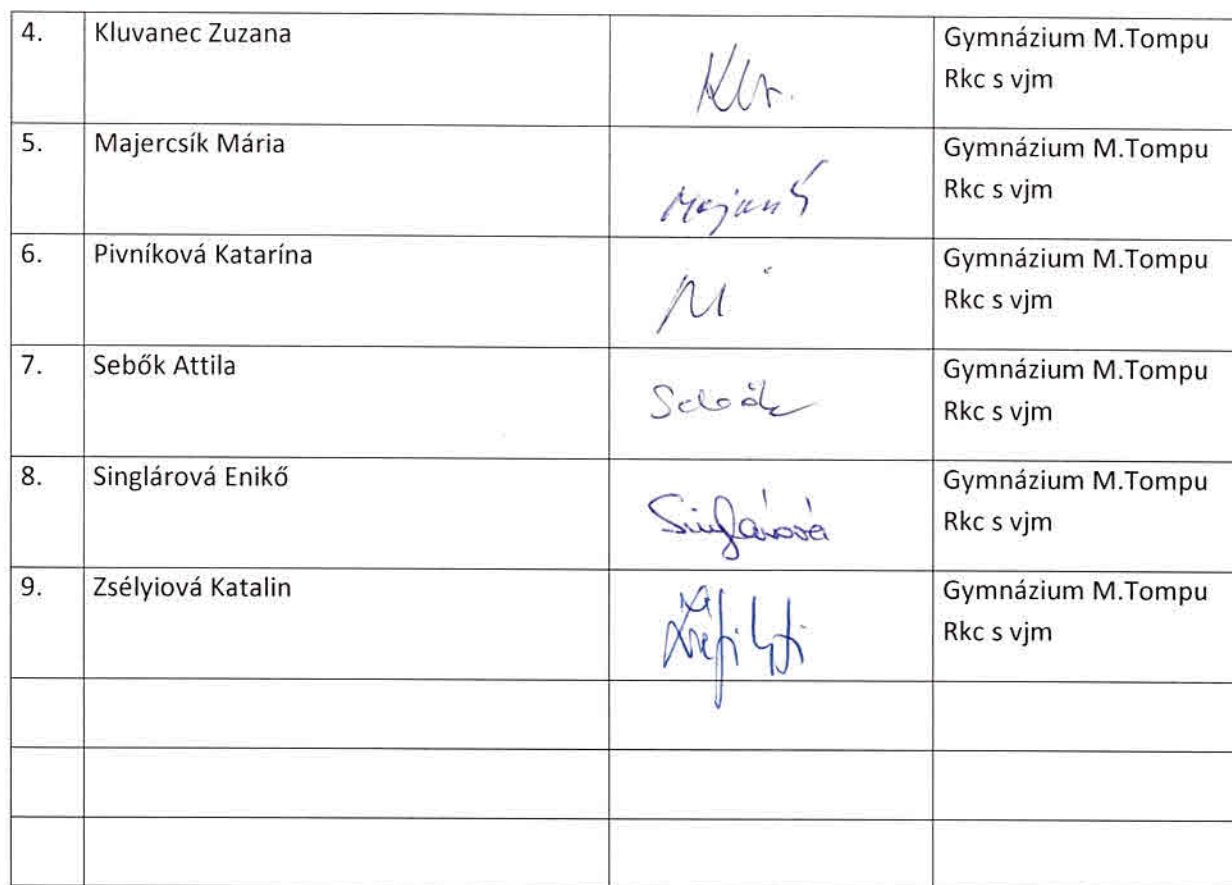 4. Kluvanec Zuzana Gymnázium M.Tompu
Rkc s vjm
5. Majercsík Mária Gymnázium M.Tompu
Rkc s vjm
6. Pivníková Katarína Gymnázium M.Tompu
Rkc s vjm
7. Sebők Attila Sebők Gymnázium M.Tompu
Rkc s vjm
8. Singlárová Enikő Singlárová Gymnázium M.Tompu
Rkc s vjm
9. Zsélyiová Katalin Gymnázium M.Tompu
Rkc s vjm